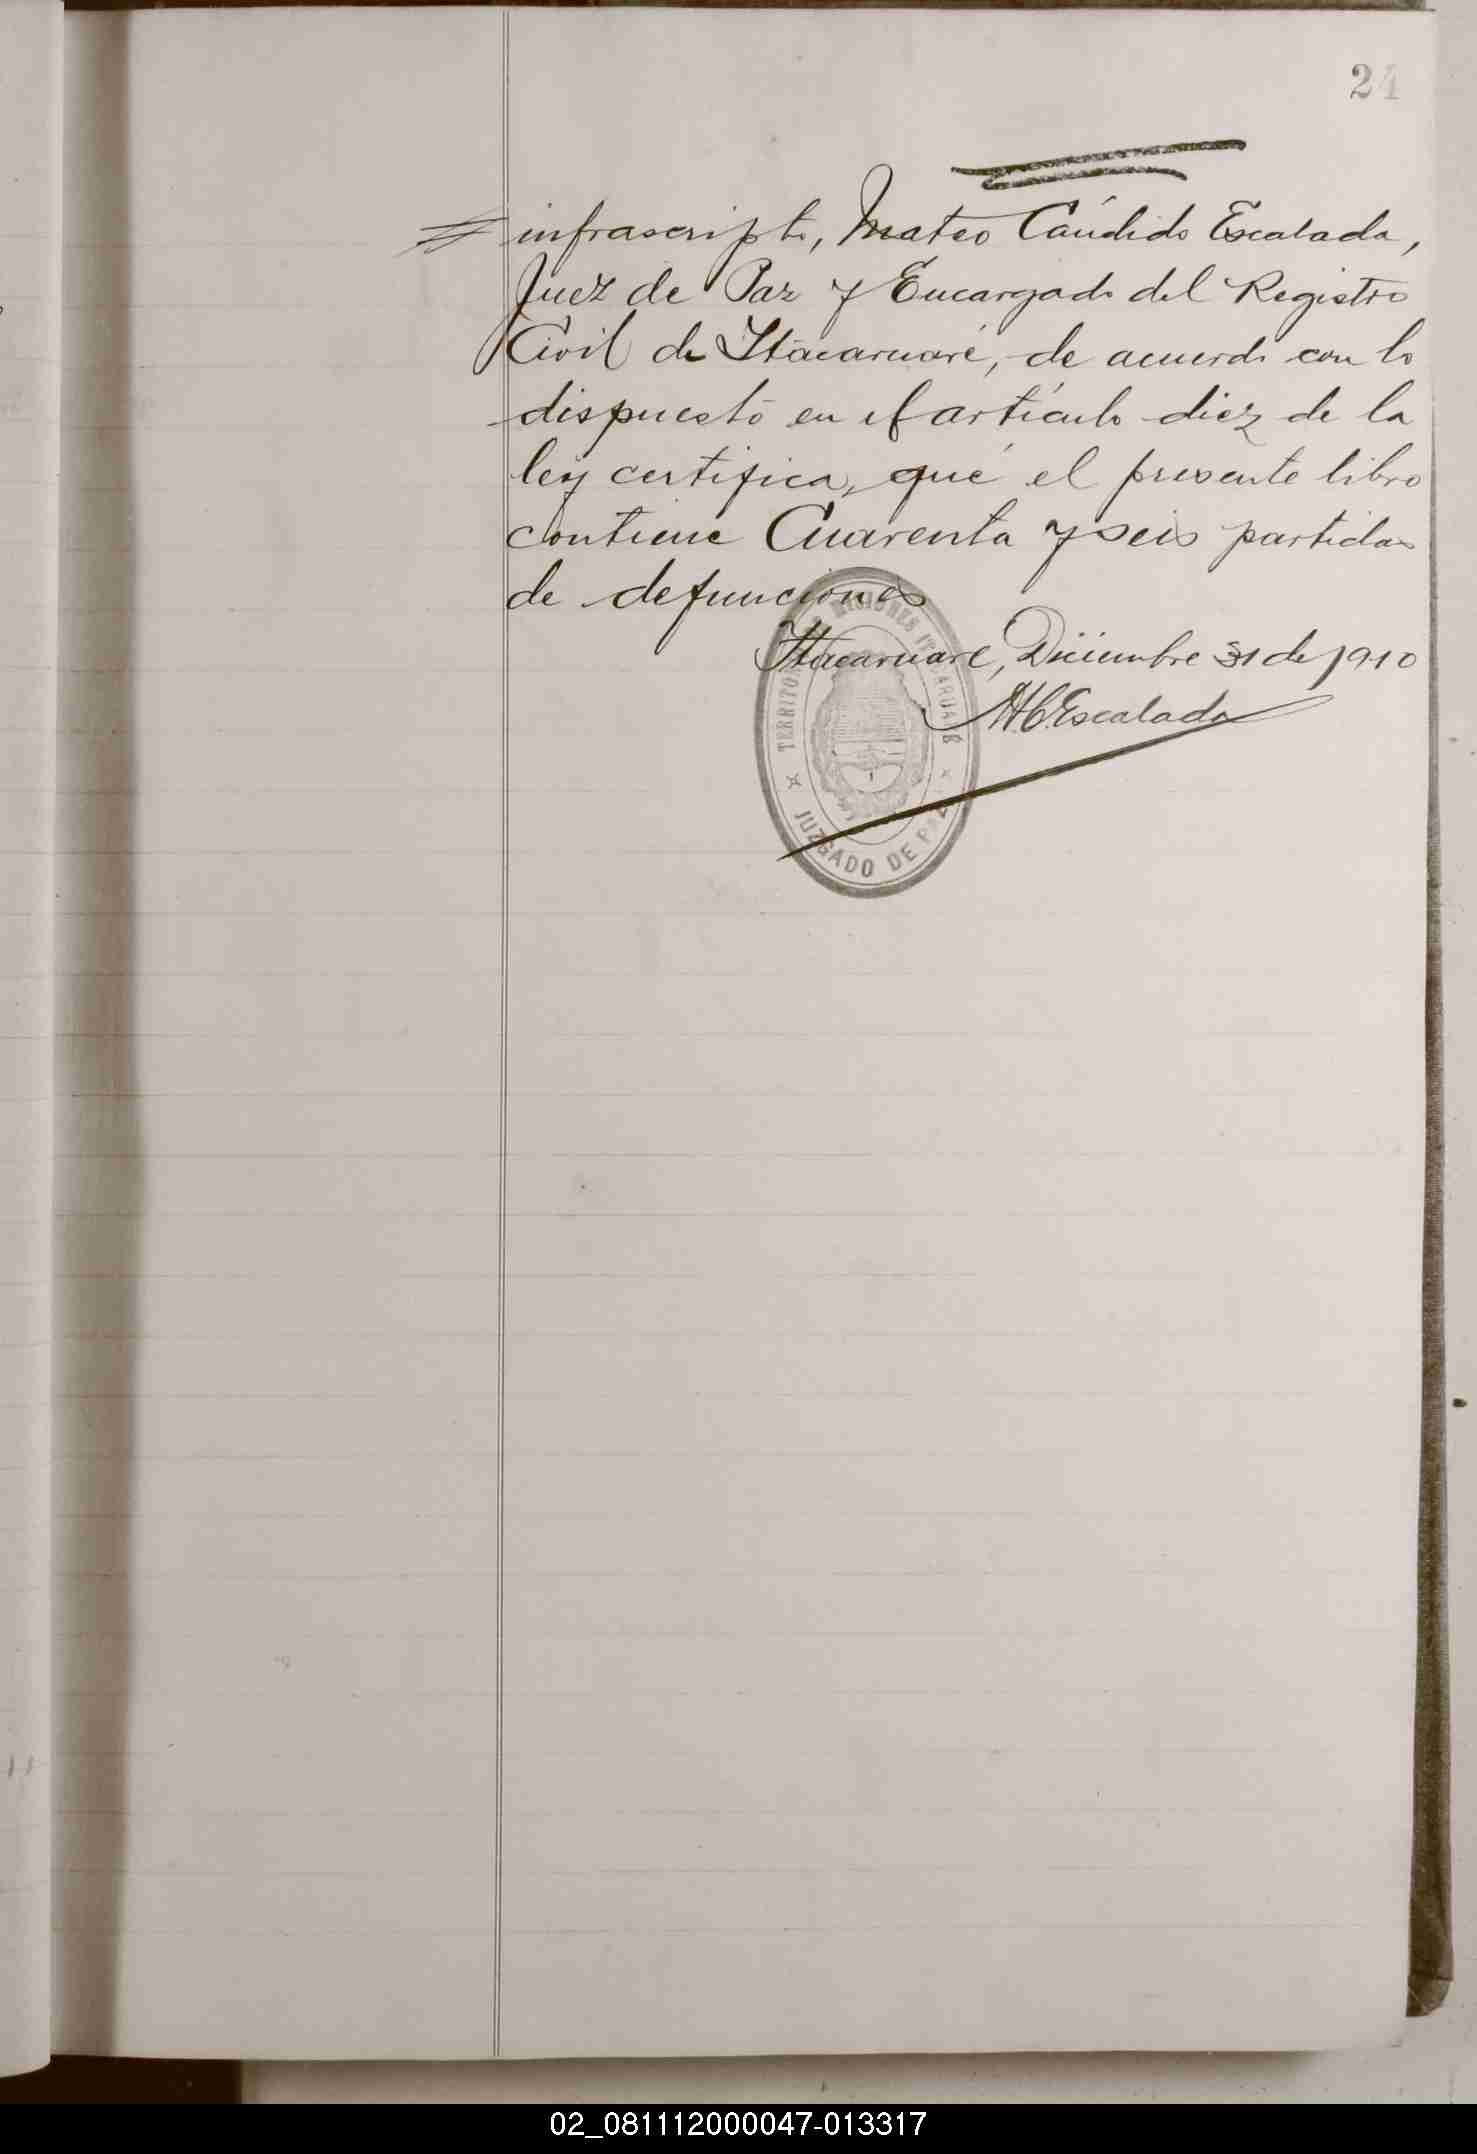 24
infrascripto, Mateo Cándido Escalada,
Juez de Paz y Encargado del Registro
Civil de Itacaruaré, de acuerdo con lo
dispuesto en el artículo diez de la
ley certifica, que el presente libro
contiene Cuarenta y seis partidas
de defunciones
Itacaruaré, Diciembre 31 de 1910
M.C. Escalada
MISIONES ITACARUARÉ
JUZGADO DE PAZ
02_081112000047-013317